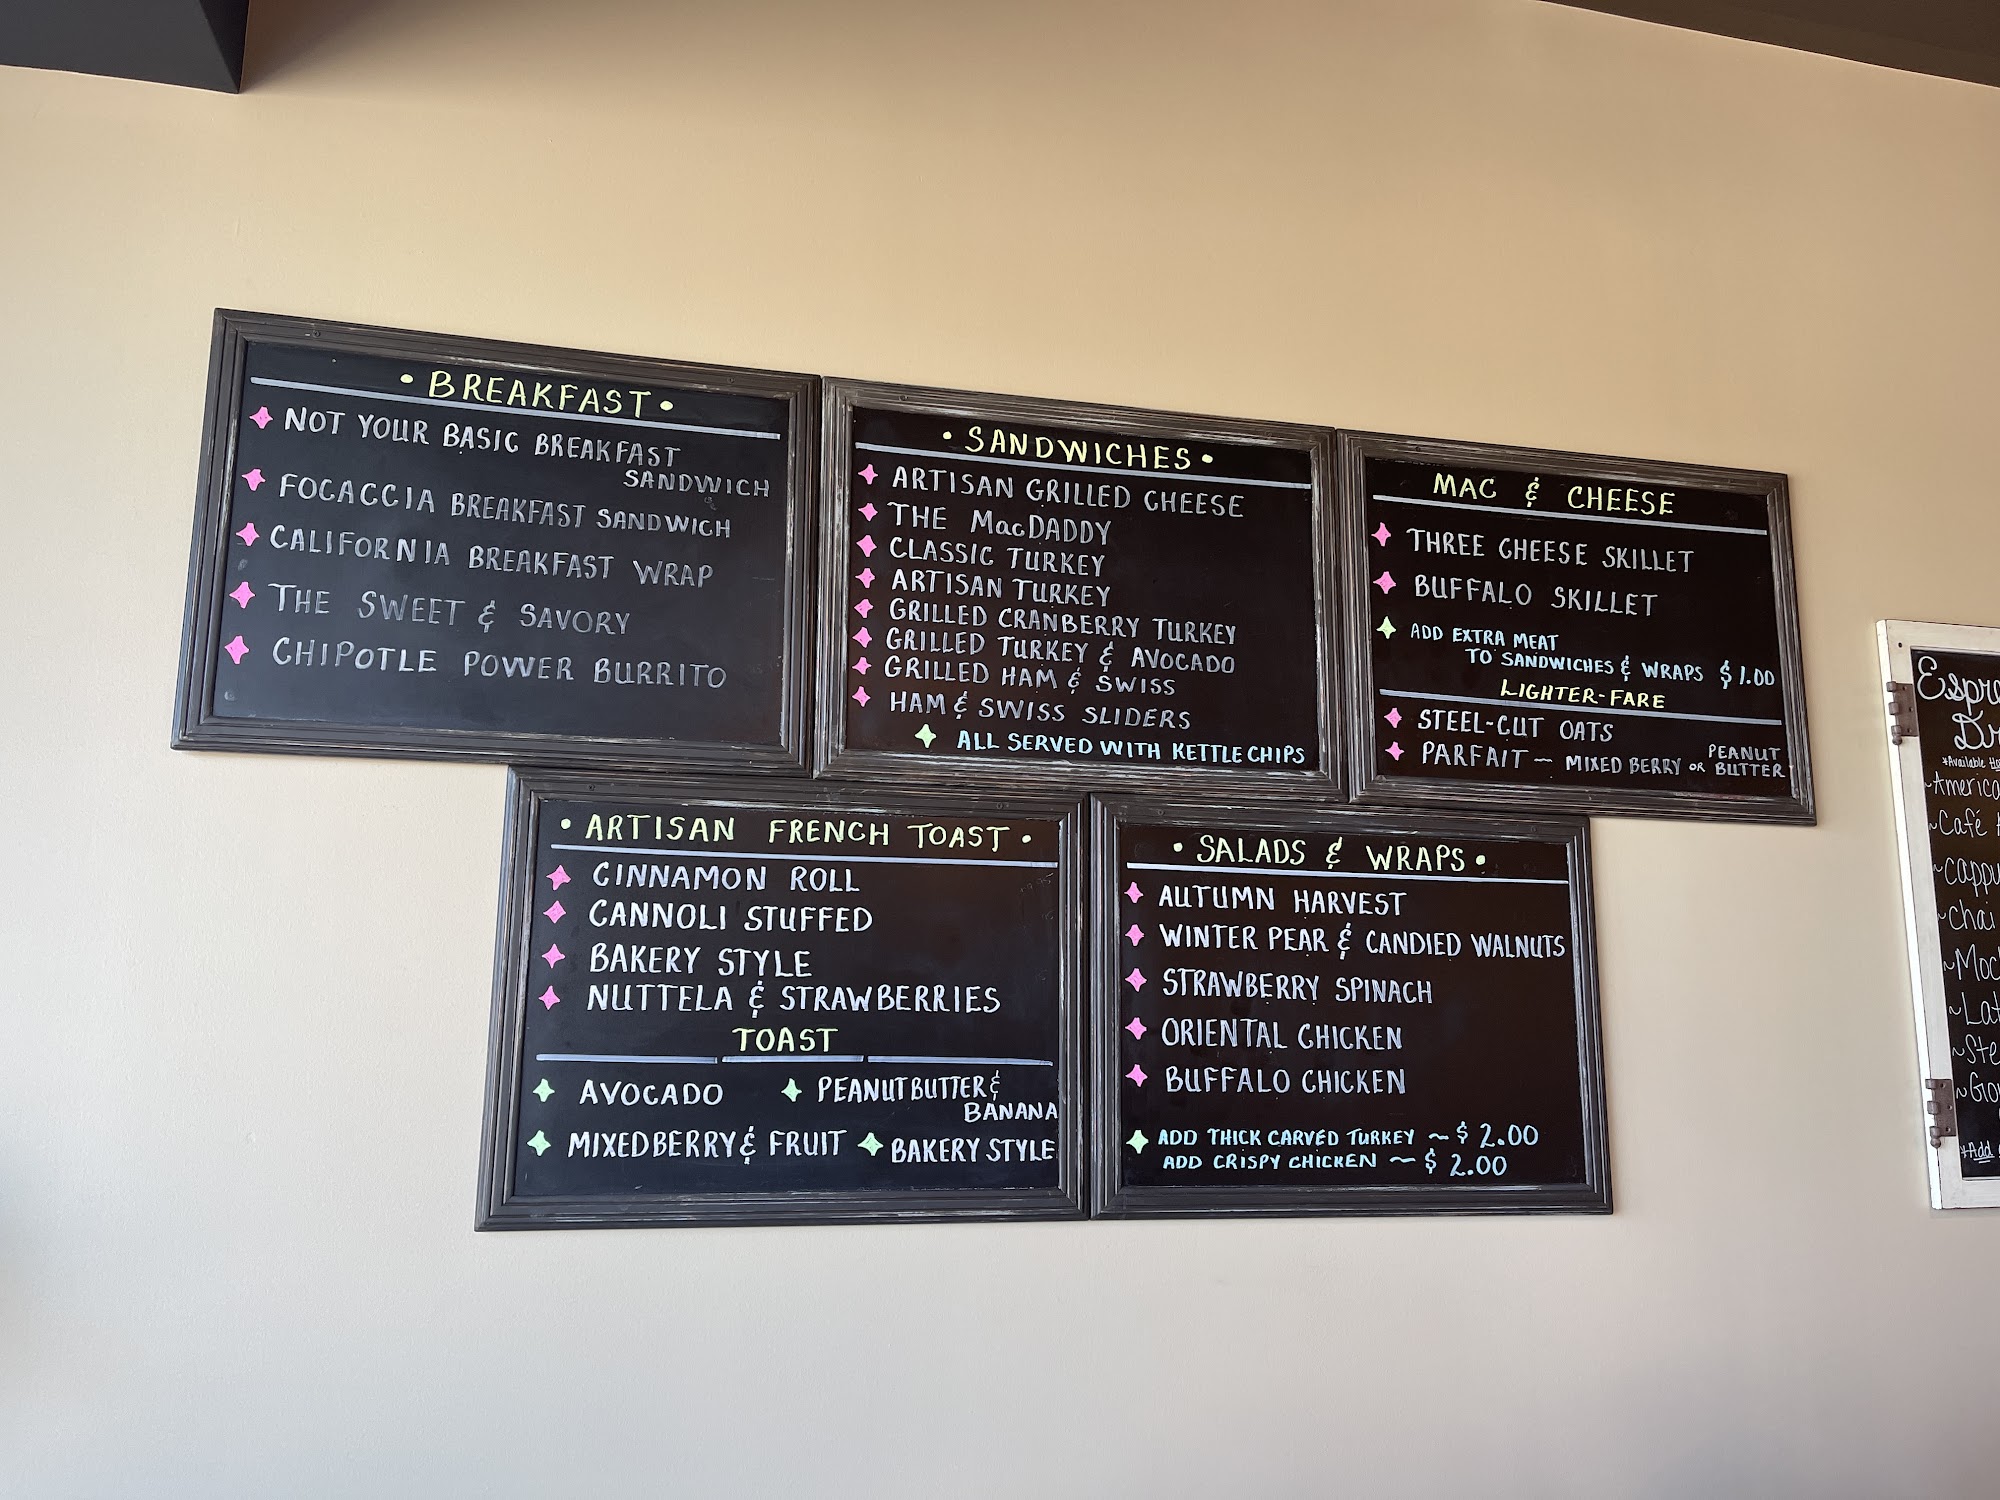 • BREAKFAST •
NOT YOUR BASIC BREAKFAST
SANDWICH
FOCACCIA BREAKFAST SANDWICH
CALIFORNIA BREAKFAST WRAP
THE SWEET & SAVORY
CHIPOTLE POWER BURRITO
• SANDWICHES •
ARTISAN GRILLED CHEESE
THE MacDADDY
CLASSIC TURKEY
ARTISAN TURKEY
GRILLED CRANBERRY TURKEY
GRILLED TURKEY & AVOCADO
GRILLED HAM & SWISS
HAM & SWISS SLIDERS
ALL SERVED WITH KETTLE CHIPS
MAC & CHEESE
THREE CHEESE SKILLET
BUFFALO SKILLET
ADD EXTRA MEAT
TO SANDWICHES & WRAPS $1.00
LIGHTER-FARE
STEEL-CUT OATS
PARFAIT ~ MIXED BERRY OR PEANUT BUTTER
• ARTISAN FRENCH TOAST •
CINNAMON ROLL
CANNOLI STUFFED
BAKERY STYLE
NUTTELA & STRAWBERRIES
TOAST
AVOCADO
PEANUT BUTTER &
BANANA
MIXED BERRY & FRUIT
BAKERY STYLE
• SALADS & WRAPS •
AUTUMN HARVEST
WINTER PEAR & CANDIED WALNUTS
STRAWBERRY SPINACH
ORIENTAL CHICKEN
BUFFALO CHICKEN
ADD THICK CARVED TURKEY ~ $2.00
ADD CRISPY CHICKEN ~ $2.00
*Available
~Café
~Chai
*Add